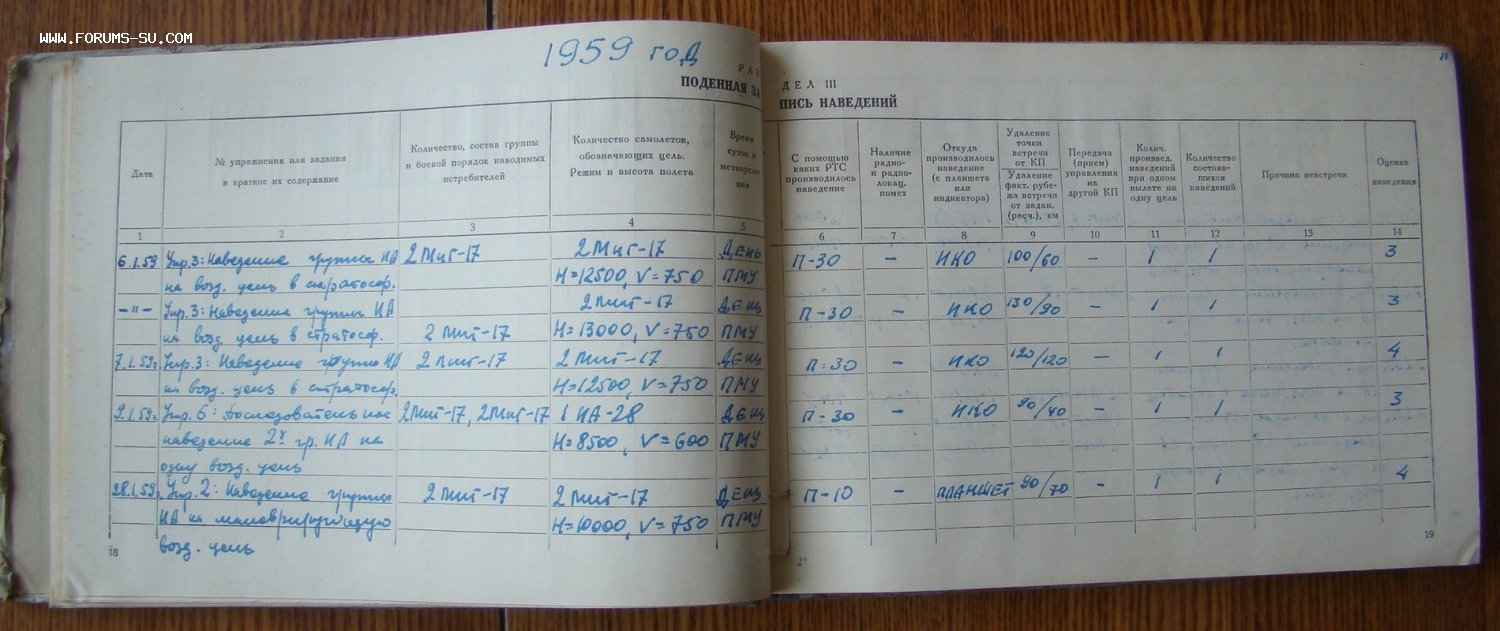 www.FORUMS-SU.COM
1959 год
РАЗ ДЕЛ III
ПОДЕННАЯ ЗА ПИСЬ НАВЕДЕНИЙ
Дата
№ упражнения или задания
и краткое их содержание
Количество, состав группы
и боевой порядок наводимых
истребителей
Количество самолетов,
обозначающих цель.
Режим и высота полета
Время
суток и
метеоусло-
вия
С помощью
каких РТС
производилось
наведение
Наличие
радио-
и радио-
локац.
помех
Откуда
производилось
наведение
(с планшета
или
индикатора)
Удаление
точки
встречи
от КП
Удаление
факт. рубе-
жа встречи
от задан.
(расч.), км
Передача
(прием)
управления
на
другой КП
Колич.
произвед.
наведений
при одном
вылете на
одну цель
Количество
состояв-
шихся
наведений
Причина невстречи
Оценка
наведения
1 2 3 4 5 6 7 8 9 10 11 12 13 14
6.1.59 Упр.3: Наведение группы ИА 2 Миг-17 2 Миг-17 День П-30 – ИКО 100/60 – 1 1 3
на возд. цель в стратосф. Н=12500, V=750 ПМУ
–"– Упр.3: Наведение группы ИА 2 Миг-17 День П-30 – ИКО 130/90 – 1 1 3
на возд. цель в стратосф. 2 Миг-17 Н=13000, V=750 ПМУ
7.1.59г. Упр.3: Наведение группы ИА 2 Миг-17 2 Миг-17 День П-30 – ИКО 120/120 – 1 1 4
на возд. цель в стратосф. Н=12500, V=750 ПМУ
9.1.59г. Упр.6: Последовательное 2 Миг-17, 2 Миг-17 1 ИЛ-28 День П-30 – ИКО 90/40 – 1 1 3
наведение 2х гр. ИА на Н=8500, V=600 ПМУ
одну возд. цель
28.1.59г. Упр.2: Наведение группы 2 Миг-17 2 Миг-17 День П-10 – ПЛАНШЕТ 90/70 – 1 1 4
ИА на маневрирующую Н=10000, V=750 ПМУ
возд. цель
18
2*
19